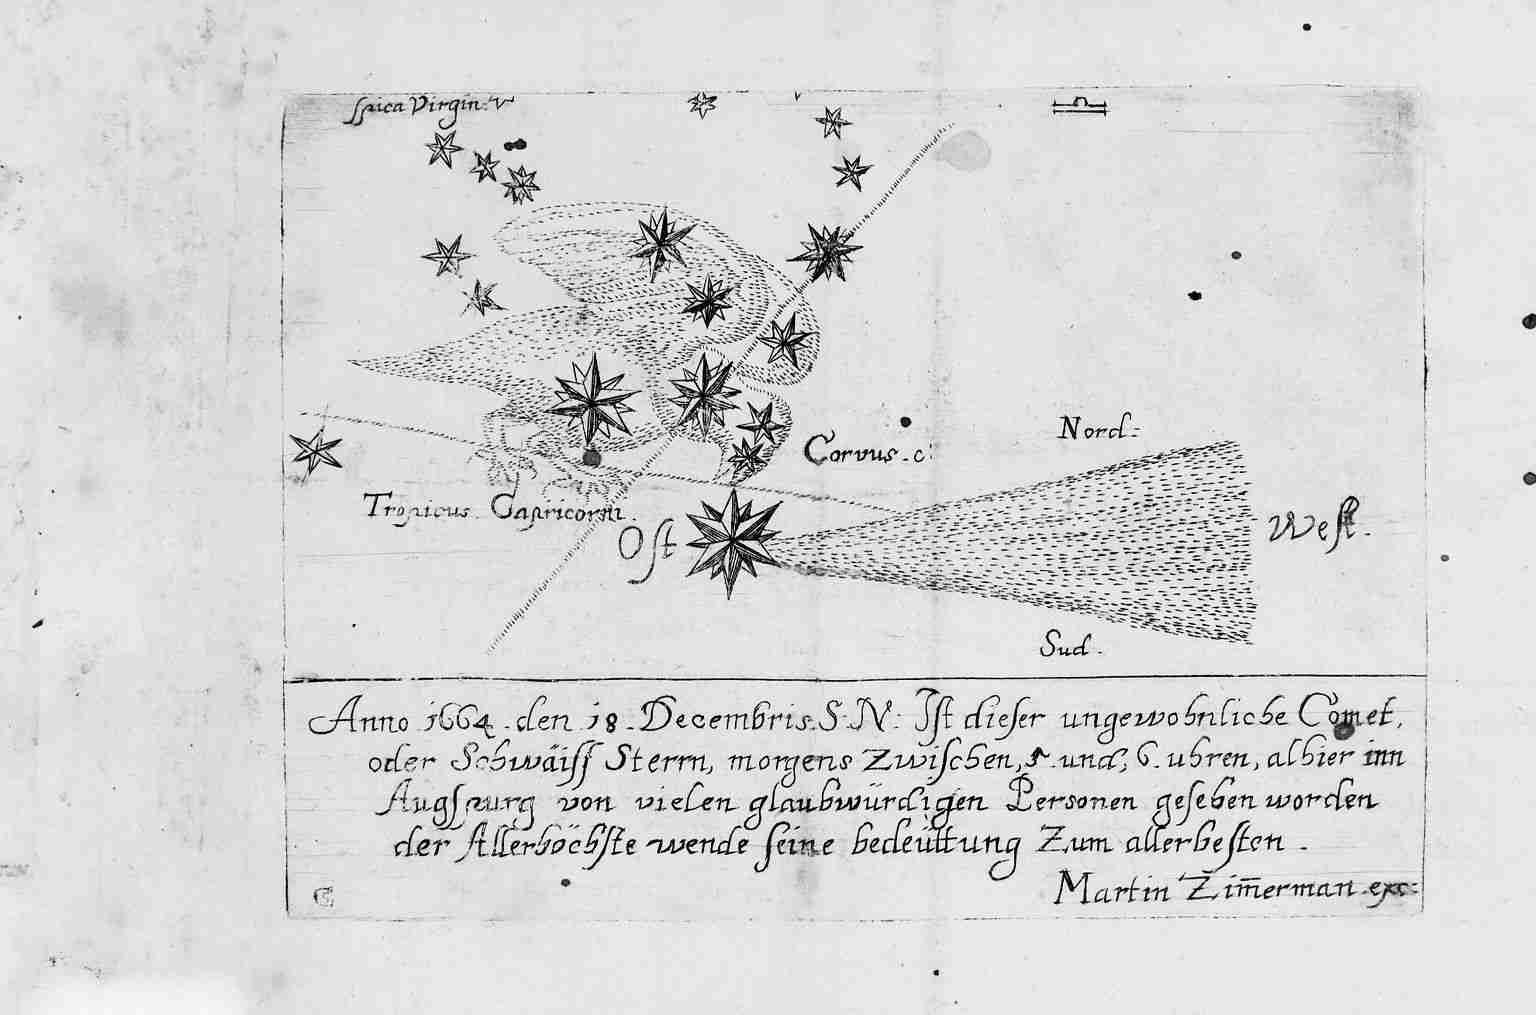 Spica Virgin:
♎
Nord:
Corvus. c:
Tropicus. Capricorni.
Oſt
Weſt.
Sud.
Anno 1664. den 18. Decembris. S: N: Iſt dieſer ungewohnliche Comet,
oder Schwäiſſ Sterrn, morgens Zwiſchen, 5. und, 6. uhren, alhier inn
Augſpurg von vielen glaubwürdigen Perſonen geſehen worden
der Allerhöchſte wende ſeine bedeüttung Zum allerbeſten.
Martin Zim̄erman exc: